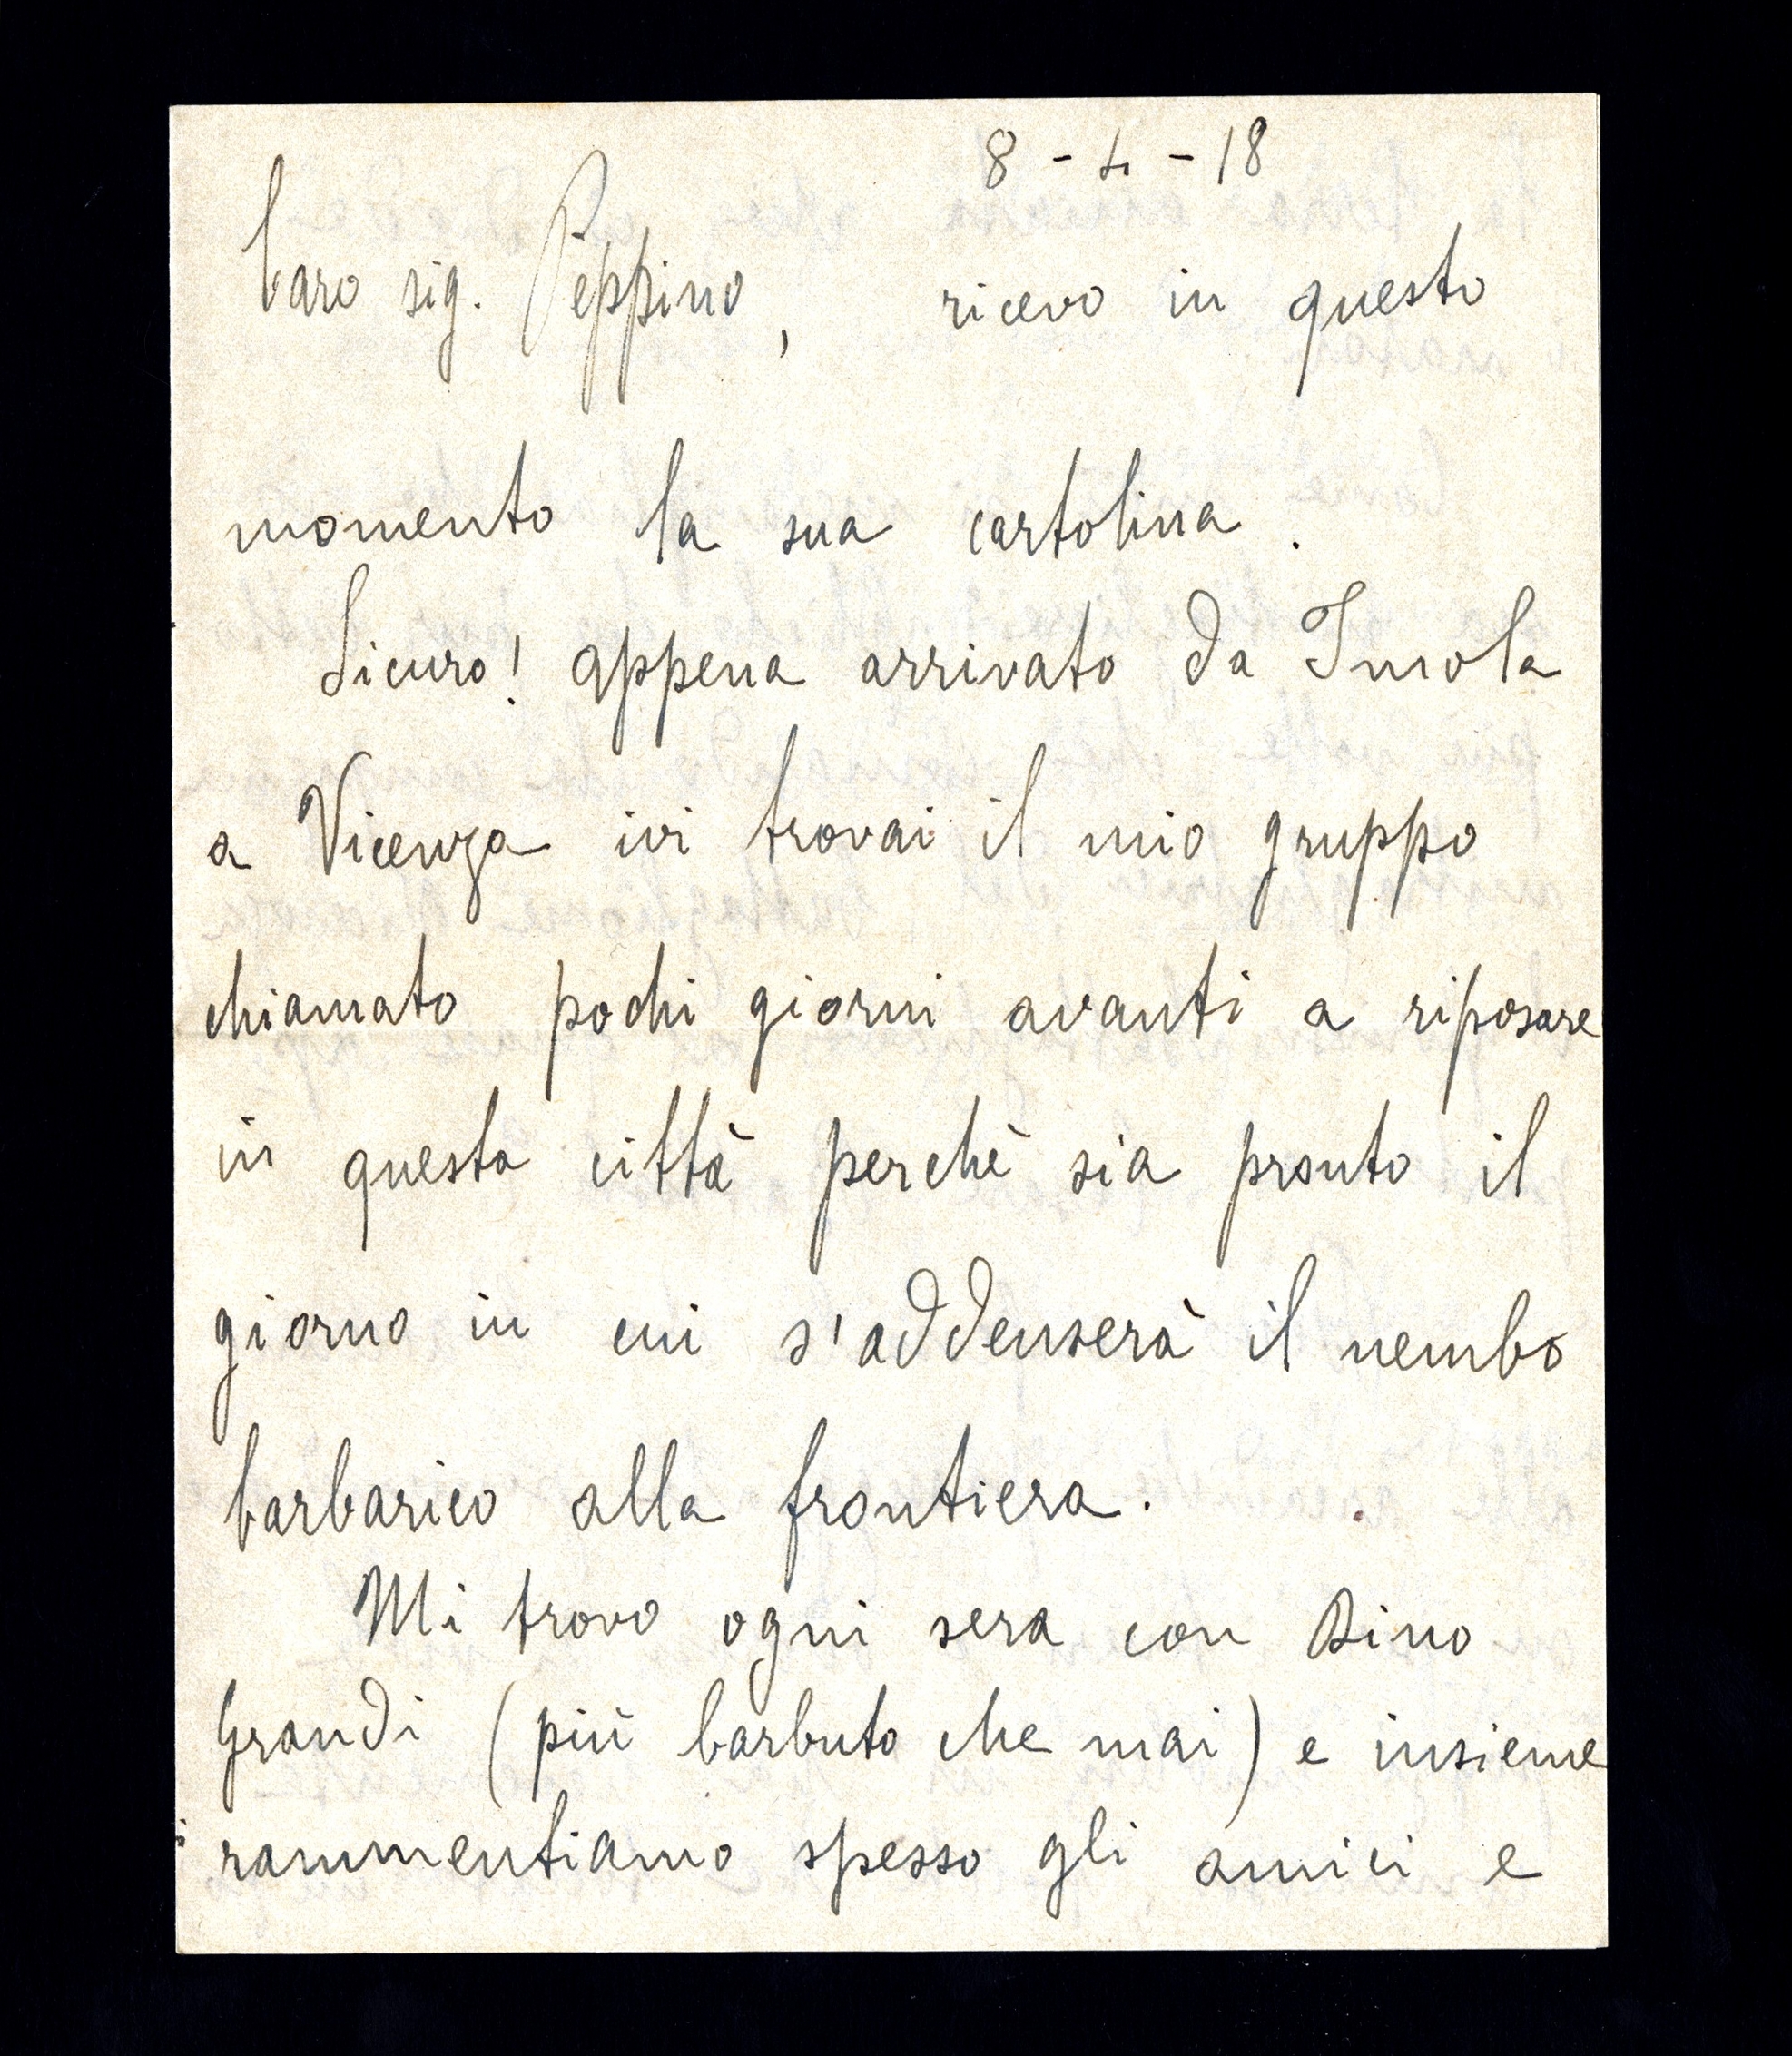 8 - 4 - 18
Caro sig. Peppino, ricevo in questo
momento la sua cartolina.
Sicuro! appena arrivato da Imola
a Vicenza ivi trovai il mio gruppo
chiamato pochi giorni avanti a riposare
in questa città perchè sia pronto il
giorno in cui s'addenserà il nembo
barbarico alla frontiera.
Mi trovo ogni sera con Dino
Grandi (più barbuto che mai) e insieme
rammentiamo spesso gli amici e